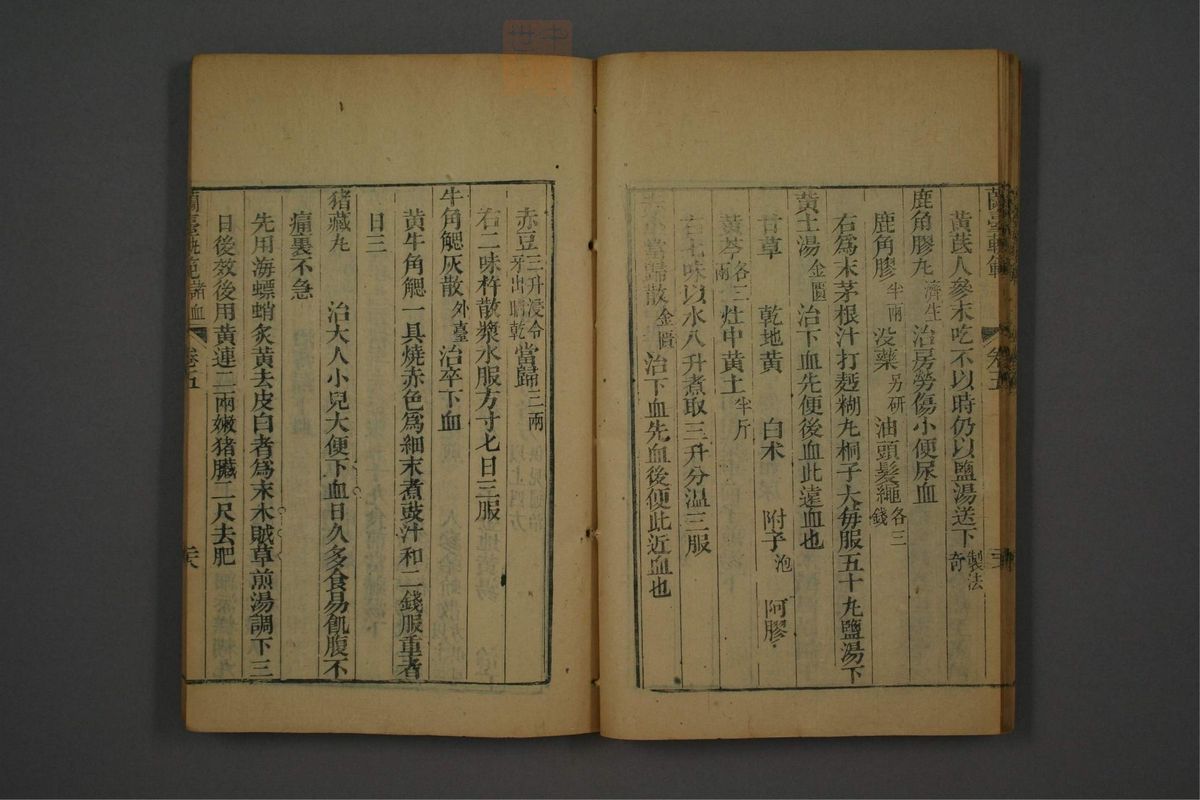 蘭臺軌範
卷五
黃芪人參末吃不以時仍以鹽湯送下製法奇
鹿角膠丸濟生治房勞傷小便尿血
鹿角膠半兩沒藥另研油頭髮繩各三錢
右爲末茅根汁打麪糊丸桐子大每服五十丸鹽湯下
黃土湯金匱治下血先便後血此遠血也
甘草 乾地黃 白术 附子泡 阿膠
黃芩各三兩灶中黃土半斤
右七味以水八升煮取三升分温三服
赤小當歸散金匱治下血先血後便此近血也
赤豆三升浸令牙出晒乾當歸三兩
右二味杵散漿水服方寸匕日三服
牛角䚡灰散外臺治卒下血
黃牛角䚡一具燒赤色爲細末煮豉汁和二錢服重者
日三
猪藏丸 治大人小兒大便下血日久多食易飢腹不
痛裏不急
先用海螵蛸炙黃去皮白者爲末木賊草煎湯調下三
日後效後用黃連二兩嫩猪臟二尺去肥
蘭臺軌範諸血
卷五
六